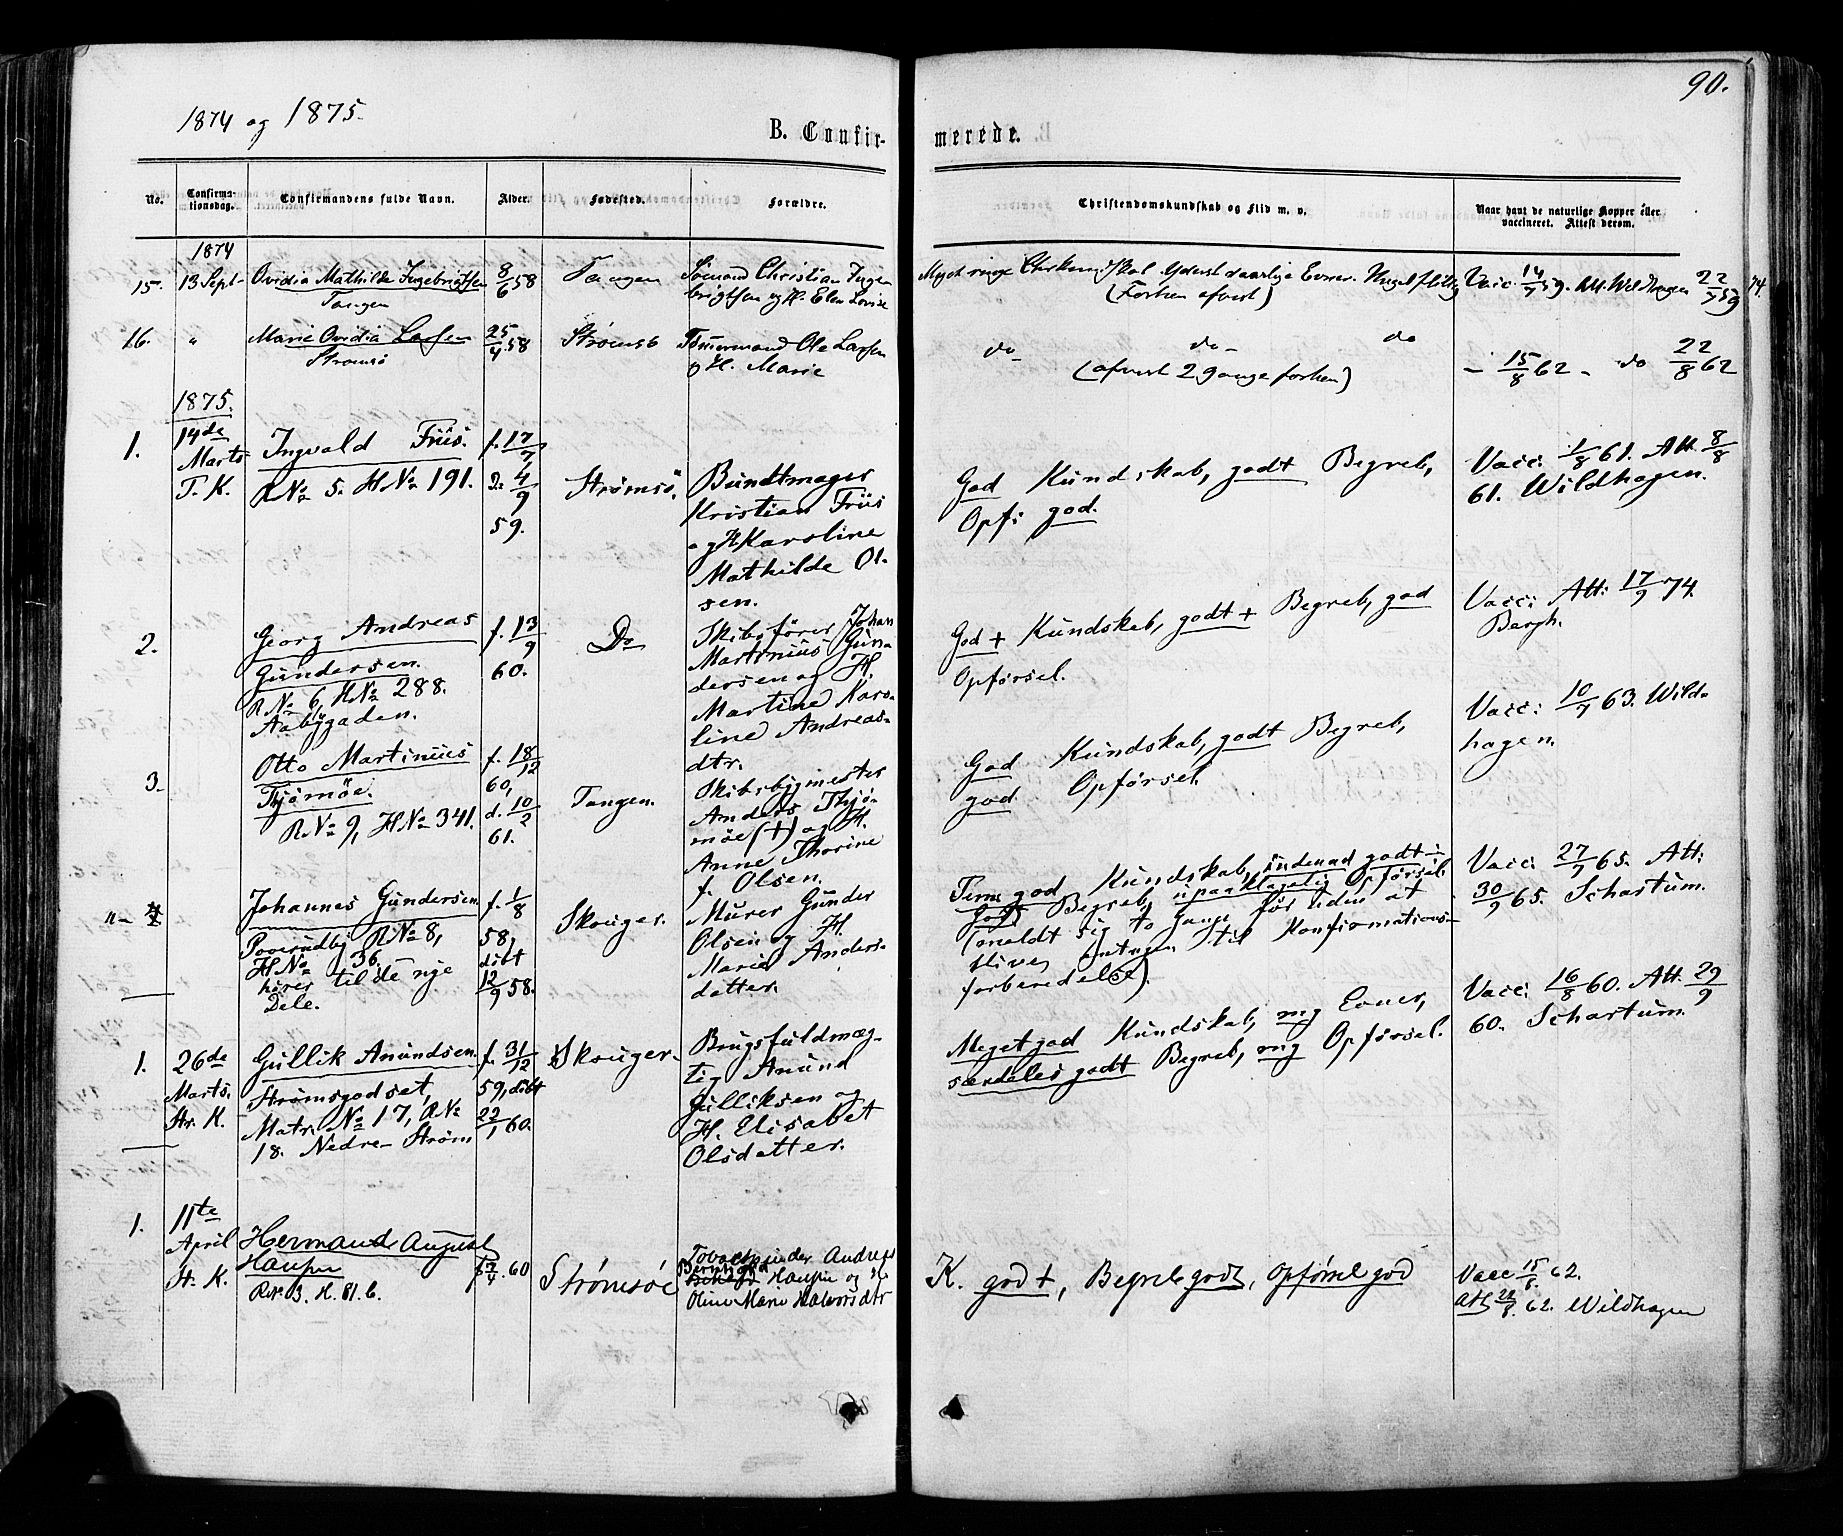 90.
1874 og 1875.
B. Confirmerede.
No.
Confirmationsdag.
Confirmandens fulde Navn.
Alder.
Fødested.
Forældre.
Christendomskundskab og Flid m. v.
Naar havt de naturlige Kopper eller vaccineret. Attest derom.
1874
15. 13 Sept. Ovidia Mathilde Ingebrigtsen 8/6 58 Tangen Sømand Christian Inge-
Tangen brigtsen og H. Elen Lovise
Meget ringe Yderst daarlige Evner. Meget flittig Vacc. 14/7 59. Att. Wildhagen 22/7 59 74.
(Forhen afvist)
16. " Marie Ovidia Larsen 25/4 58 Strømsö Tømmermand Ole Larsen
Strømsö og H. Marie
do do do - 15/8 62 - do 22/8 62
(afvist 2 Gange forhen)
1875.
1. 14de Marts T. K.
Ingvald Friis.
R No 5. H No 191.
f. 17/7 D. 4/9 59.
Strømsö.
Bundtmager
Kristian Friis
og H Karoline
Mathilde Ol-
sen.
God Kundskab, godt Begreb,
Opf: god.
Vacc: 1/8 61. Att. 8/8
61. Wildhagen.
2.
Georg Andreas
Gundersen.
R No 6, H No 288.
Aabygaden.
f. 13/9
60.
Do
Skibsfører Johan
Martinius Gun-
dersen og H.
Martine Karo-
line Andreas-
dtr.
God + Kundskab, godt + Begreb, god
Opførsel.
Vacc: Att: 17/9 74.
Bergh.
3.
Otto Martinius
Thjømöe.
R No 9, H No 341.
f. 18/12
60,
d. 10/2
61.
Tangen.
Skibsbygmester
Anders Thjö-
möe (+) og H.
Anne Thorine
f. Olsen.
God Kundskab, godt Begreb,
god Opførsel.
Vacc: 10/7 63. Wild-
hagen.
Johannes Gundersen.
R No 8,
H No 36.
hører til de nye
Dele.
f. 1/8
58,
døbt
12/9 58.
Skouger.
Murer Gunder
Olsen og H.
Marie Anders-
datter.
god Kundskab,
Begreb, upaaklagelig Opførsel.
(meldt sig to Gange før uden at
blive antagen til Konfirmations-
forberedelse).
Vacc: 27/7 65. Att:
30/9 65. Schartum.
1. 26de
Marts.
Str. K.
Gullik Anundsen.
Strømsgodset,
Matr. No 17, R No
18. Nedre Strøm
f. 31/12
59, døbt
22/1 60.
Skouger.
Brugsfuldmæg-
tig Anund
Gulliksen og
H. Elisabet
Olsdatter.
Meget god Kundskab, mg Evner,
særdeles godt Begreb, mg Opførsel.
Vacc: 16/8 60. Att. 29/9
60. Schartum.
1. 11te
April
St. K.
Hermand August
Hansen
R No 3. H. 81. b.
60
Strømsöe
Andreas
Bernhard Hansen og H
Oline Marie Halvorsdtr
K. god +, Begreb godt, Opførsel god
Vacc 15/8. 62.
Att 62. Wildhagen